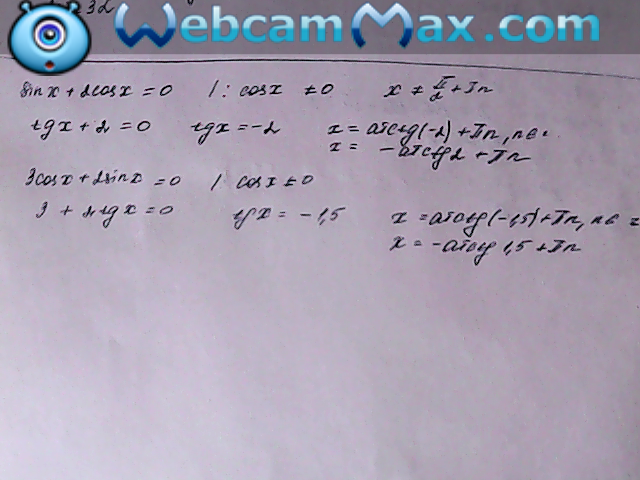 32
WebcamMax.com
sinx + 2cosx = 0 | : cosx ≠ 0 x ≠ π/2 + πn
tgx + 2 = 0 tgx = -2 x = arctg(-2) + πn, n∈
x = -arctg2 + πn
3cosx + 2sinx = 0 | cosx ≠ 0
3 + 2tgx = 0 tgx = -1,5 x = arctg(-1,5) + πn, n∈
x = -arctg 1,5 + πn